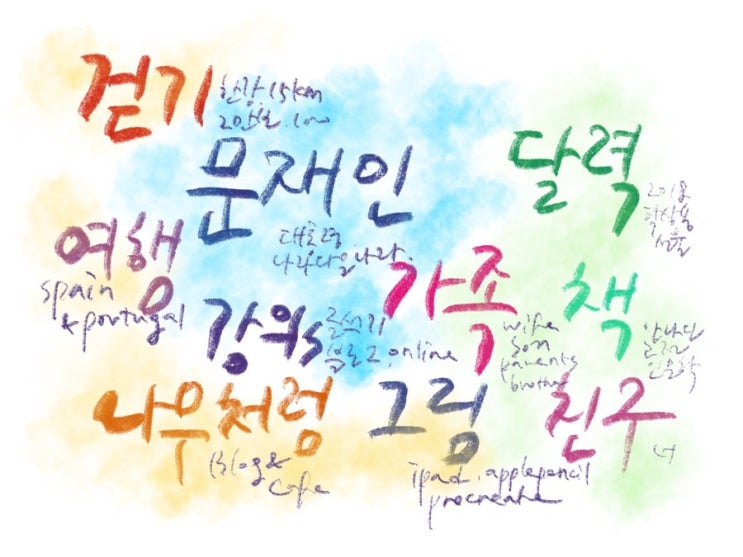 걷기
한강 15km
2만보
문재인
대통령
나라다운 나라
달력
2018
탁상용
선물
여행
spain
& portugal
강의s
글쓰기
블로그, online
가족
wife
son
parents
brother
책
인문학
나무처럼
Blog &
Cafe
그림
ipad, applepencil
procreate
친구
너